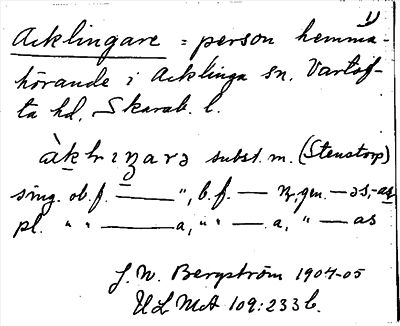 1)
Acklingare = person hemma-
hörande i Acklinga sn. Vartof-
ta hd, Skarab. l.
subst. m. (Stenstorp)
sing. ob. f. ——— ", b. f. —— gen. — as
pl. " " ——— a, " " —— a, " — as
J. W. Bergström 1904-05
ULMA 109:233 b.